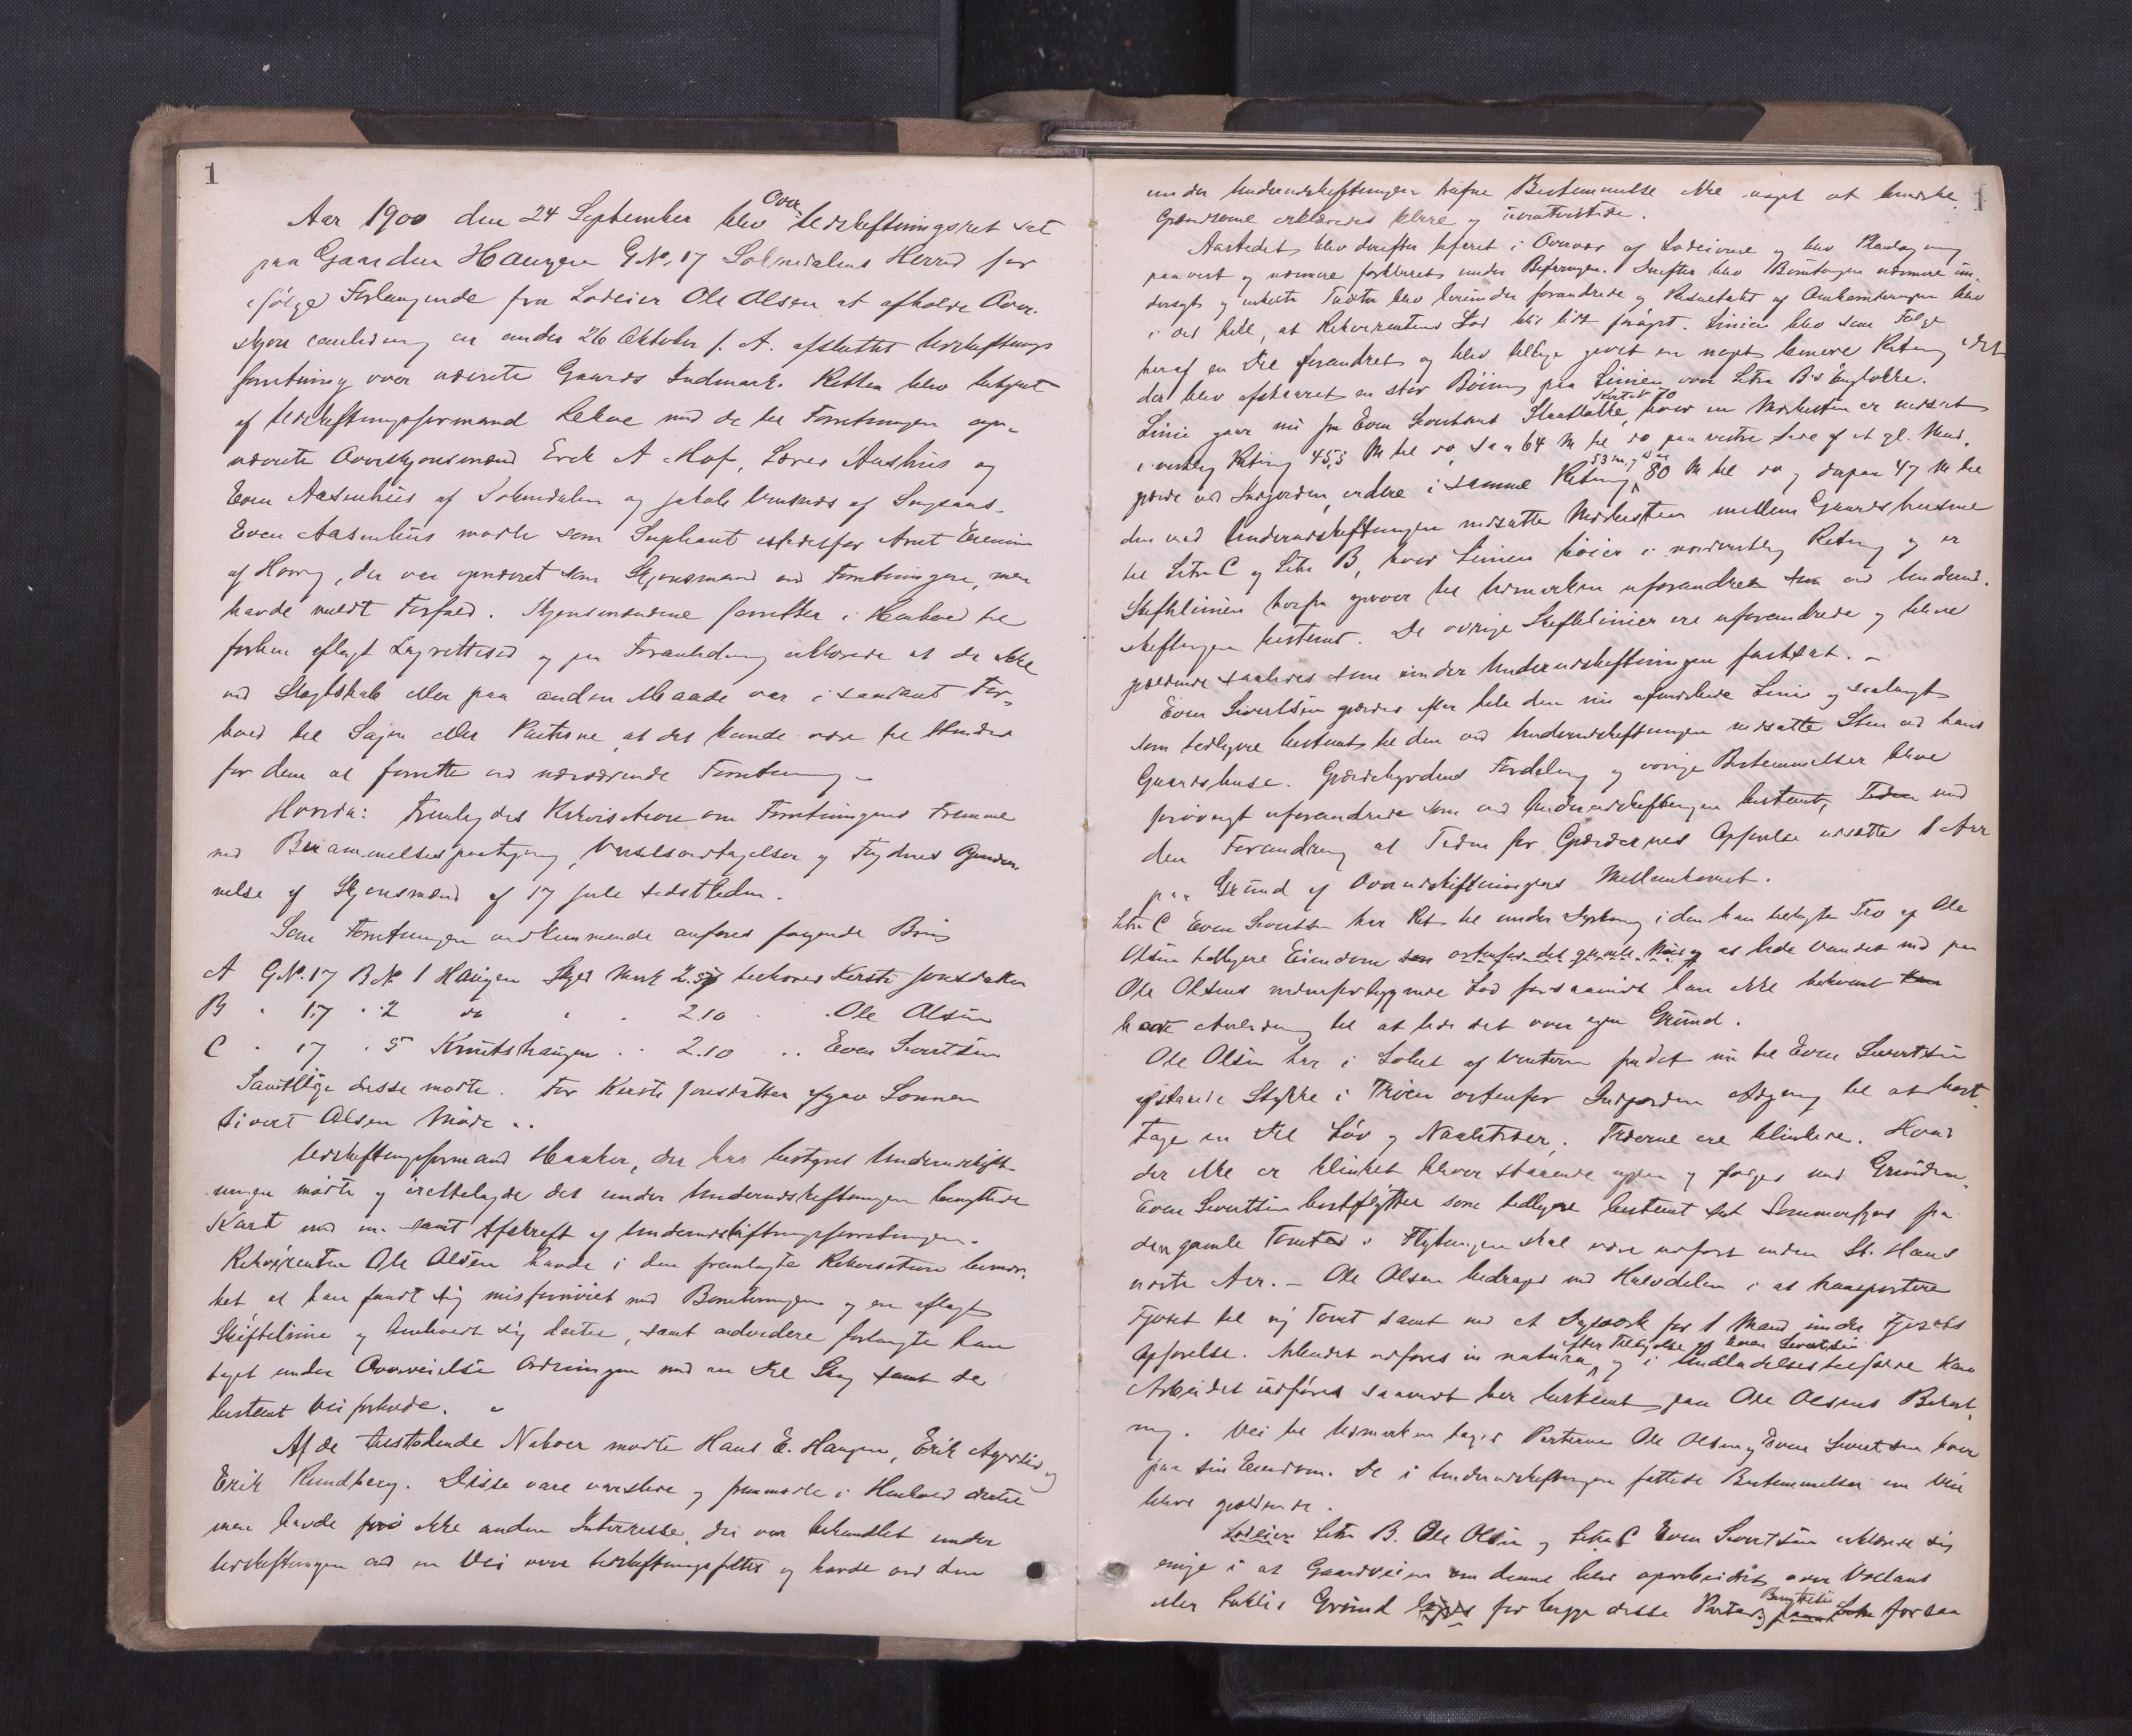 1
Aar 1900 den 24 September blev Over-
udskiftningsret sat
paa Gaarden Haugen G.No. 17 Solendalens Herred for
ifølge Forlangende fra Lodeier Ole Olsen at afholde Over-
skjøn anledning en under 26 Oktober f. A. afsluttet Udskiftnings
forretning over nævnte Gaards Indmark. Retten blev betjent
af Udskiftningsformand med de til Forretningen op-
nævnte Overskjønsmænd Erik A Hof, Lorns Aashus og
Even Aasenhus af Solendalen og Jakob af
Even Aasenhus mødte som Supleant istedetfor Arnt
af Houg, der var opnævnt som Skjønsmand ved Forretningen, men
havde meldt Forfald. Skjønsmændene forretter i Henhold til
forhen aflagt Lagrettesed og paa Foranledning erklærede at de ikke
ved Slægtskab eller paa anden Maade var i saadant For-
hold til Sagen eller Parterne at det kunde være til Hinder
for dem at forrette ved nærværende Forretning.
Hvorda: Fremlagdes Rekvisition om Forretningens Fremme
med Berammelsespaategning, Varselsvedtagelser og Fogdens Opnæv-
nelse af Skjønsmænd af 17 Juli sidstleden.
Som Forretningen vedkommende anføres følgende Brug
A G.No. 17 B.No 1 Haugen Skyld Mark 2.57 tilhører Kersti Jonsdatter
B " 17 " 2 do " " 2.10 " Ole Olsen
C " 17 " 5 Knutshaugen " " 2.10 " " Even Sivertsen
Samtlige disse mødte. For Kersti Jonsdatter afgav Sønnen
Sivert Olsen Møde..
Udskiftningsformand Hauker, der har bestyret Underudskift-
ningen mødte og irettelagde det under Underudskiftningen benyttede
Kart med m. samt Afskrift af Underudskiftningsforretningen.
Rekvirenten Ole Olsen havde i den fremlagte Rekvisition bemær-
ket, at han fandt sig misfornøiet med Boniteringen og en aflagt
Skiftelinie og henholdt sig dertil, samt endvidere forlangte han
taget under Overveielse Ordningen med en Del Skog samt de
bestemt Veiforholde.
Af de tilstødende Naboer mødte Hans E. Haugen, Erik og
Erik Rundberg. Disse vare varslede og fremmødte i Henhold dertil
men havde ikke anden Interesse, der var behandlet under
Udskiftningen end en Vei over Udskiftningsfeltet og havde ved den
1
under Underudskiftningen trufne Bestemmelse ikke noget at bemærke.
Grændserne erklæredes klare og uomtvistede.
Aastedet blev derefter befaret i Overvær af Lodeierne og blev
paavist og nærmere forklaret under Befaringen. Derefter blev Boniteringen nærmere un-
dersøgt og enkelte Taxter blev herunder forandrede og Resultatet af Omkonteringen blev
i det hele, at Rekvirentens Lod blir lidt forøget. Linien blev som Følge
heraf en Del forandret og blev tillige givet en noget lemere Retning idet
der blev afskaaret en stor Bøining paa Linien over Litra B's Engløkke.
Linie gaar nu fra Even Sivertsens hvor en Merkesten er nedsat
i vestlig Retning 45,5 M til do, saa 64 M til do paa vestre Side af et gl. Mud.
gjærde ved Indgjerden, videre i samme Retning 80 M til do og derpaa 47 M til
den ved Underudskiftningen nedsatte Merkesten mellem Gaardshusene
til Litra C og Litra B, hvor Linien bøier i nordvestlig Retning og er
Skiftelinien herfra opover til Udmarken uforandret som ved Underud-
skiftningen bestemt. De øvrige Skiftelinier ere uforandrede og blive
gjældende saaledes som under Underudskiftningen fastsat.
Even Sivertsen gjærder efter hele den nu afmerkede Linie og
som tidligere bestemt til den ved Underudskiftningen nedsatte Sten ved hans
Gaardshuse. Gjærdehyrdens Fordeling og øvrige Bestemmelser blive
forøvrigt uforandrede som ved Underudskiftningen bestemt, Tiden med
den Forandring at Tiden for Gjærdernes Opførelse udsættes 1 Aar
paa Grund af Overudskiftningens Mellemkomst.
Litra C Even Sivertsen har Ret til under i den han tillagte Tro af Ole
Olsens tidligere Eiendom østenfor det gamle og at lede Vandet ned paa
Ole Olsens nedenforliggende Lod forsaavidt han ikke bekvemt
have Anledning til at lede det over egen Grund.
Ole Olsen har i Løbet af Vinteren paa det nu til Even Sivertsen
afstaaede Stykke i Trøen østenfor Indgjerden Adgang til at bort-
tage en Del Løv og Naaletrær. Trærne ere blinkede. Hvad
der ikke er blinket bliver staaende igjen og følger med Grunden.
Even Sivertsen bortflytter som tidligere bestemt sit Sommerfjøs fra
den gamle Tomt. Flytningen skal være udført inden St. Hans
næste Aar. – Ole Olsen bidrager med Halvdelen i at transportere
Fjøset til ny Tomt samt med et Dagsværk for 1 Mand under Fjøsets
Opførelse. Arbeidet udføres in natura efter Tilsigelse af Even Sivertsen og i Undladelsestilfælde kan
Arbeidet udføres saavidt her bestemt paa Ole Olsens Bekost-
ning. Vei til Udmarken tager Parterne Ole Olsen og Even Sivertsen hver
paa sin Eiendom. De i Underudskiftningen fattede Bestemmelser om Vei
blive gjældende.
Lodeiere Litr B. Ole Olsen og Litra C Even Sivertsen erklærede sig
enige i at Gaardveien om denne blev oparbeidet over Vollans
eller Grund for begge disse Parters Benyttelse forsaa